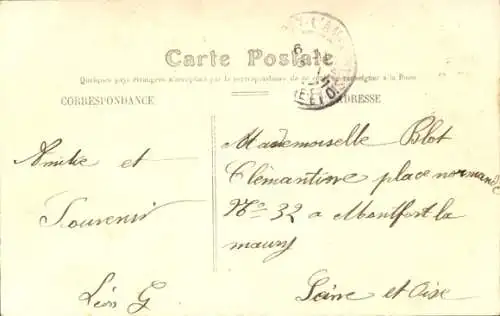 Carte Postale
Quelques pays étrangers n'acceptent pas la correspondance de ce côté (se renseigner à la Poste
CORRESPONDANCE
ADRESSE
Amitie et
Souvenir
Léon G
Mademoiselle Blot
Clémantine place normande
No 32 a Montfort la
maury
Seine et Oise